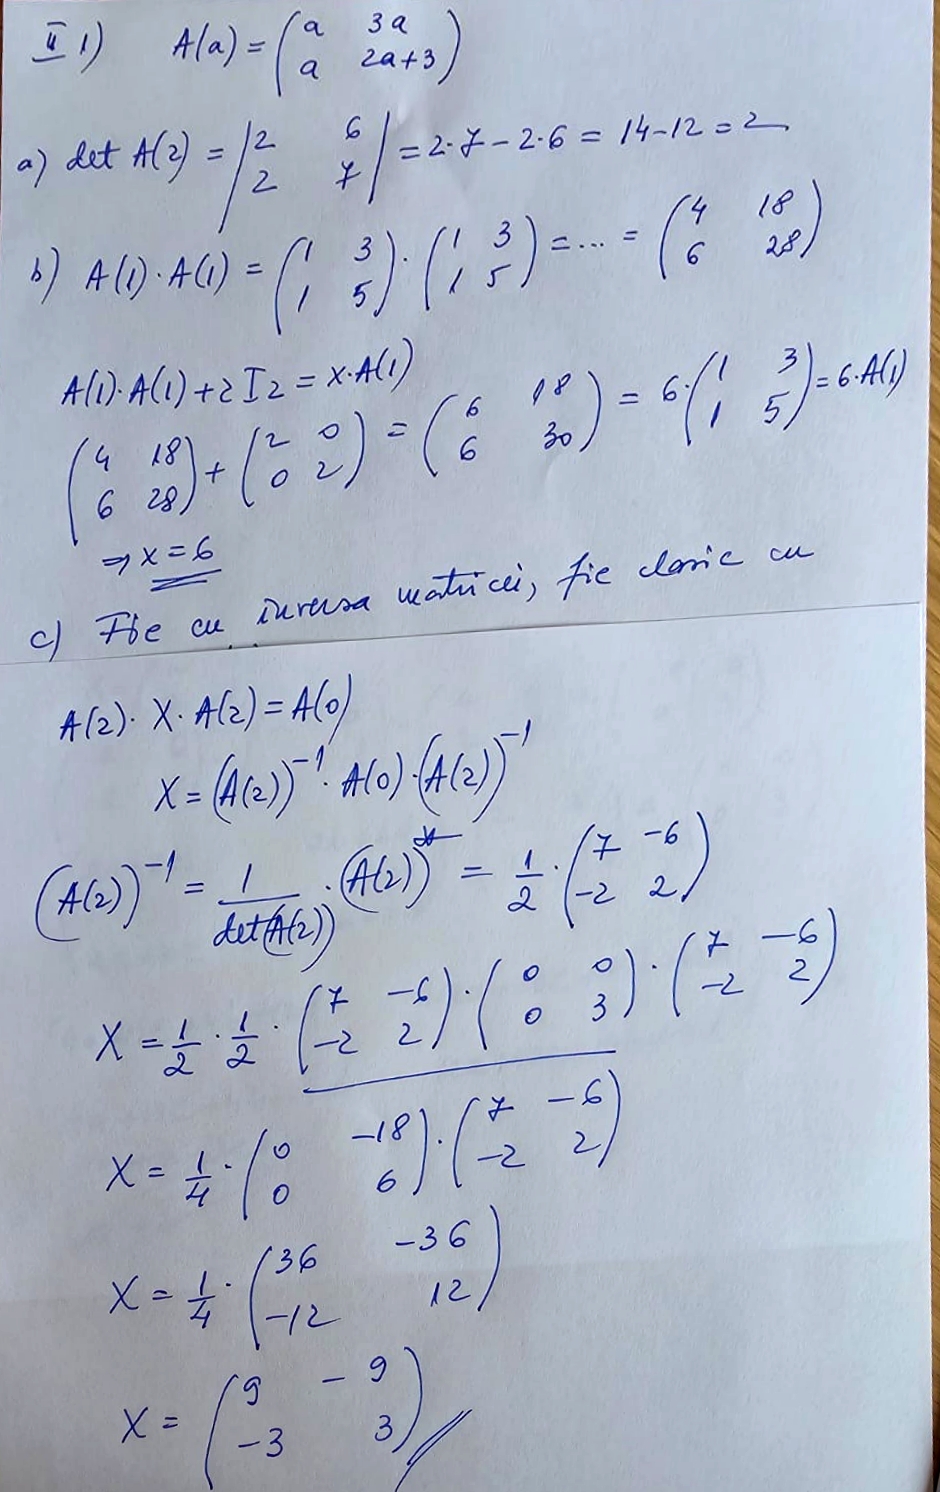 II 1) A(a) = ( a 3a ; a 2a+3 )
a) det A(2) = | 2 6 ; 2 7 | = 2·7 − 2·6 = 14−12 = 2
b) A(1)·A(1) = ( 1 3 ; 1 5 ) · ( 1 3 ; 1 5 ) = ... = ( 4 18 ; 6 28 )
A(1)·A(1) + 2 I2 = x·A(1)
( 4 18 ; 6 28 ) + ( 2 0 ; 0 2 ) = ( 6 18 ; 6 30 ) = 6·( 1 3 ; 1 5 ) = 6·A(1)
⇒ x = 6
c) Fie cu inversa matricei, fie clasic cu
A(2)· X· A(2) = A(0)
X = (A(2))⁻¹ · A(0) · (A(2))⁻¹
(A(2))⁻¹ = 1/det(A(2)) · (A(2))* = 1/2 · ( 7 −6 ; −2 2 )
X = 1/2 · 1/2 · ( 7 −6 ; −2 2 ) · ( 0 0 ; 0 3 ) · ( 7 −6 ; −2 2 )
X = 1/4 · ( 0 −18 ; 0 6 ) · ( 7 −6 ; −2 2 )
X = 1/4 · ( 36 −36 ; −12 12 )
X = ( 9 −9 ; −3 3 )